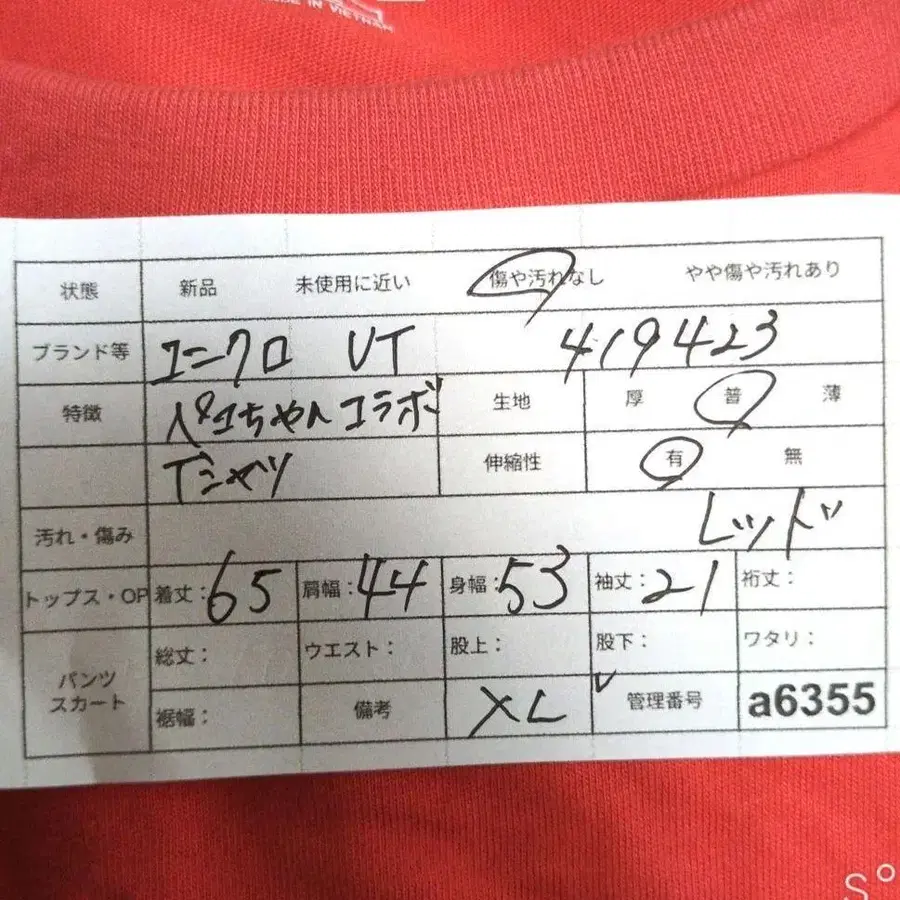 MADE IN VIETNAM
状態 新品 未使用に近い 傷や汚れなし やや傷や汚れあり
ブランド等 ユニクロ UT 419423
特徴 ペコちゃんコラボ 生地 厚 普 薄
Tシャツ 伸縮性 有 無
汚れ・傷み レッド
トップス・OP 着丈:65 肩幅:44 身幅:53 袖丈:21 裄丈:
パンツ スカート 総丈: ウエスト: 股上: 股下: ワタリ:
裾幅: 備考 XL 管理番号 a6355